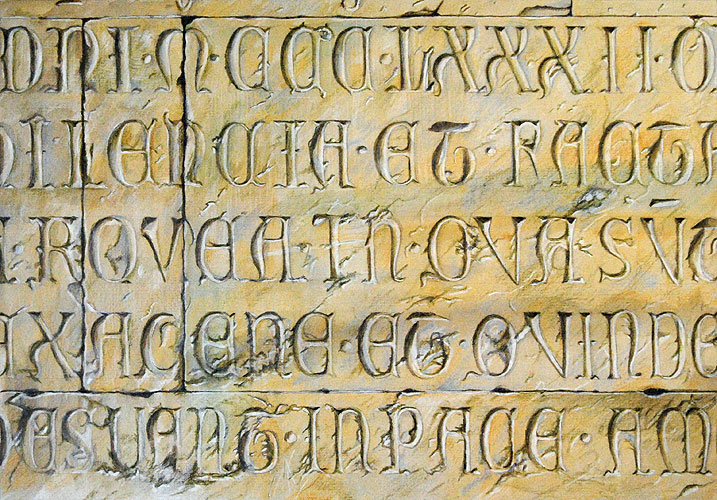 DNI·M·CCC·LXXXII·O
ILENCIA·ET·RACTA
A·ROVEA·IN·QVA·SVT
AX ACENE·ET·QVINDE
ESVANT·INPACE·AM